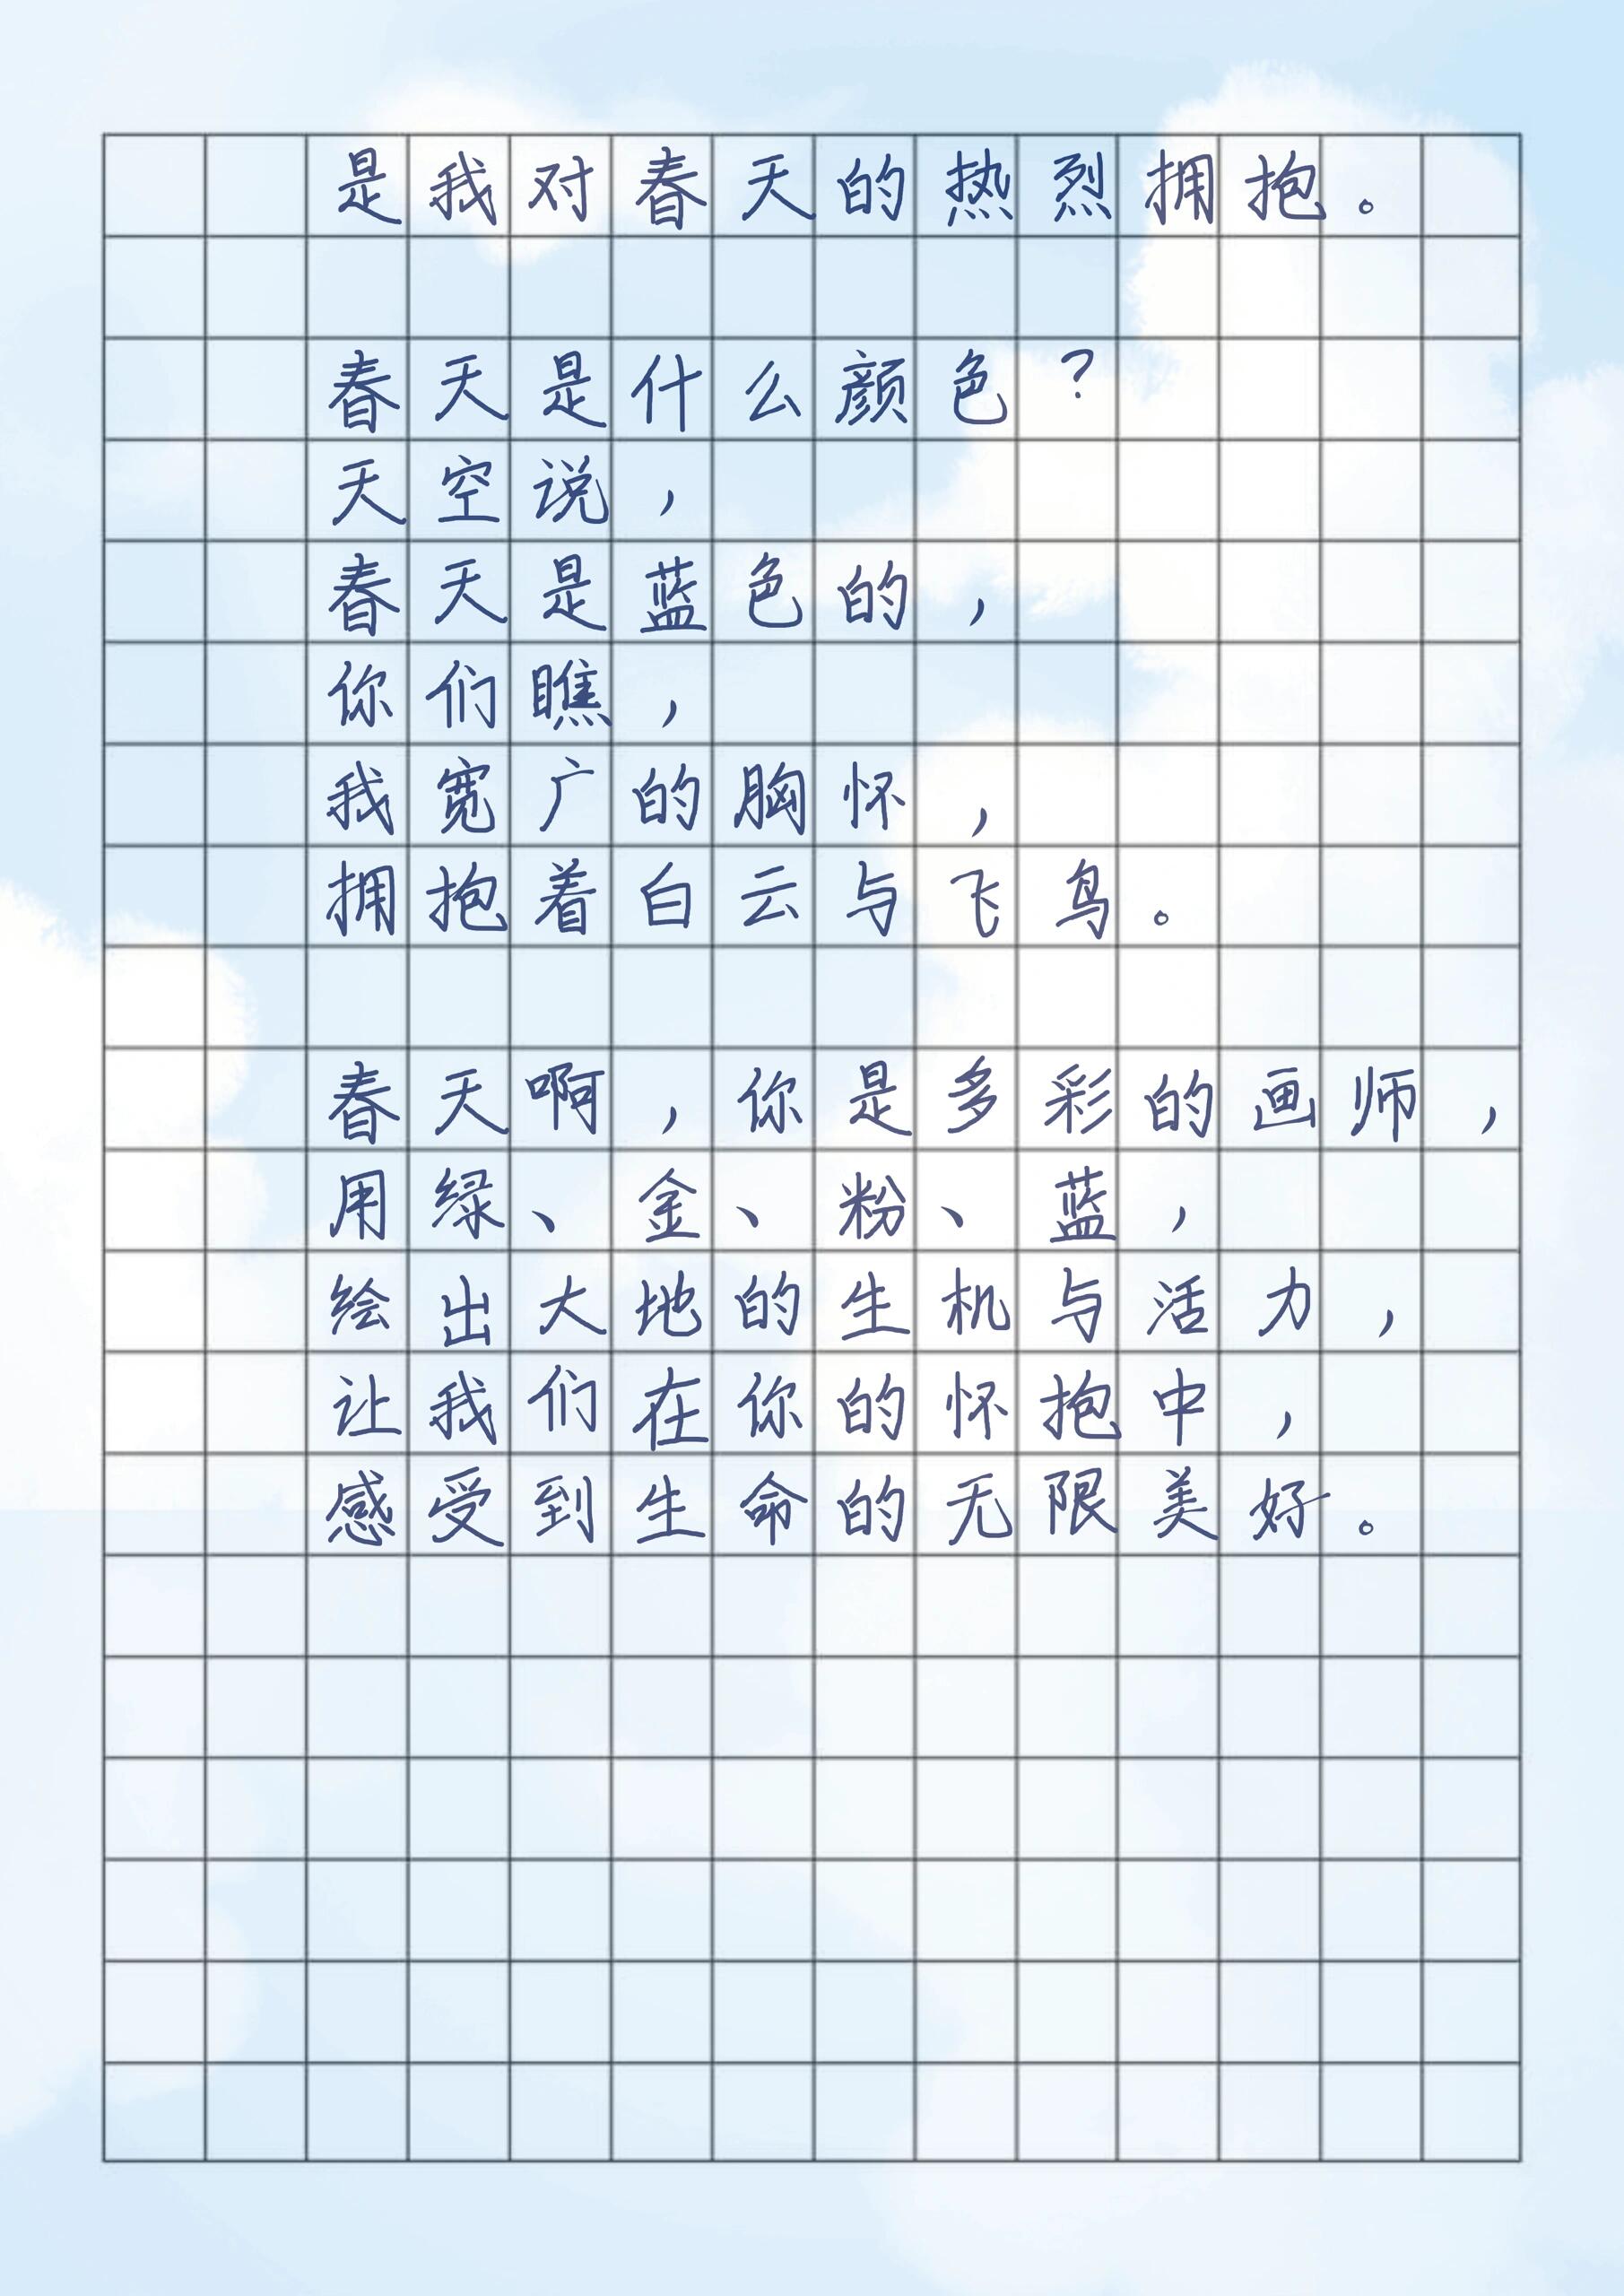 是我对春天的热烈拥抱。
春天是什么颜色？
天空说，
春天是蓝色的，
你们瞧，
我宽广的胸怀，
拥抱着白云与飞鸟。
春天啊，你是多彩的画师，
用绿、金、粉、蓝，
绘出大地的生机与活力，
让我们在你的怀抱中，
感受到生命的无限美好。